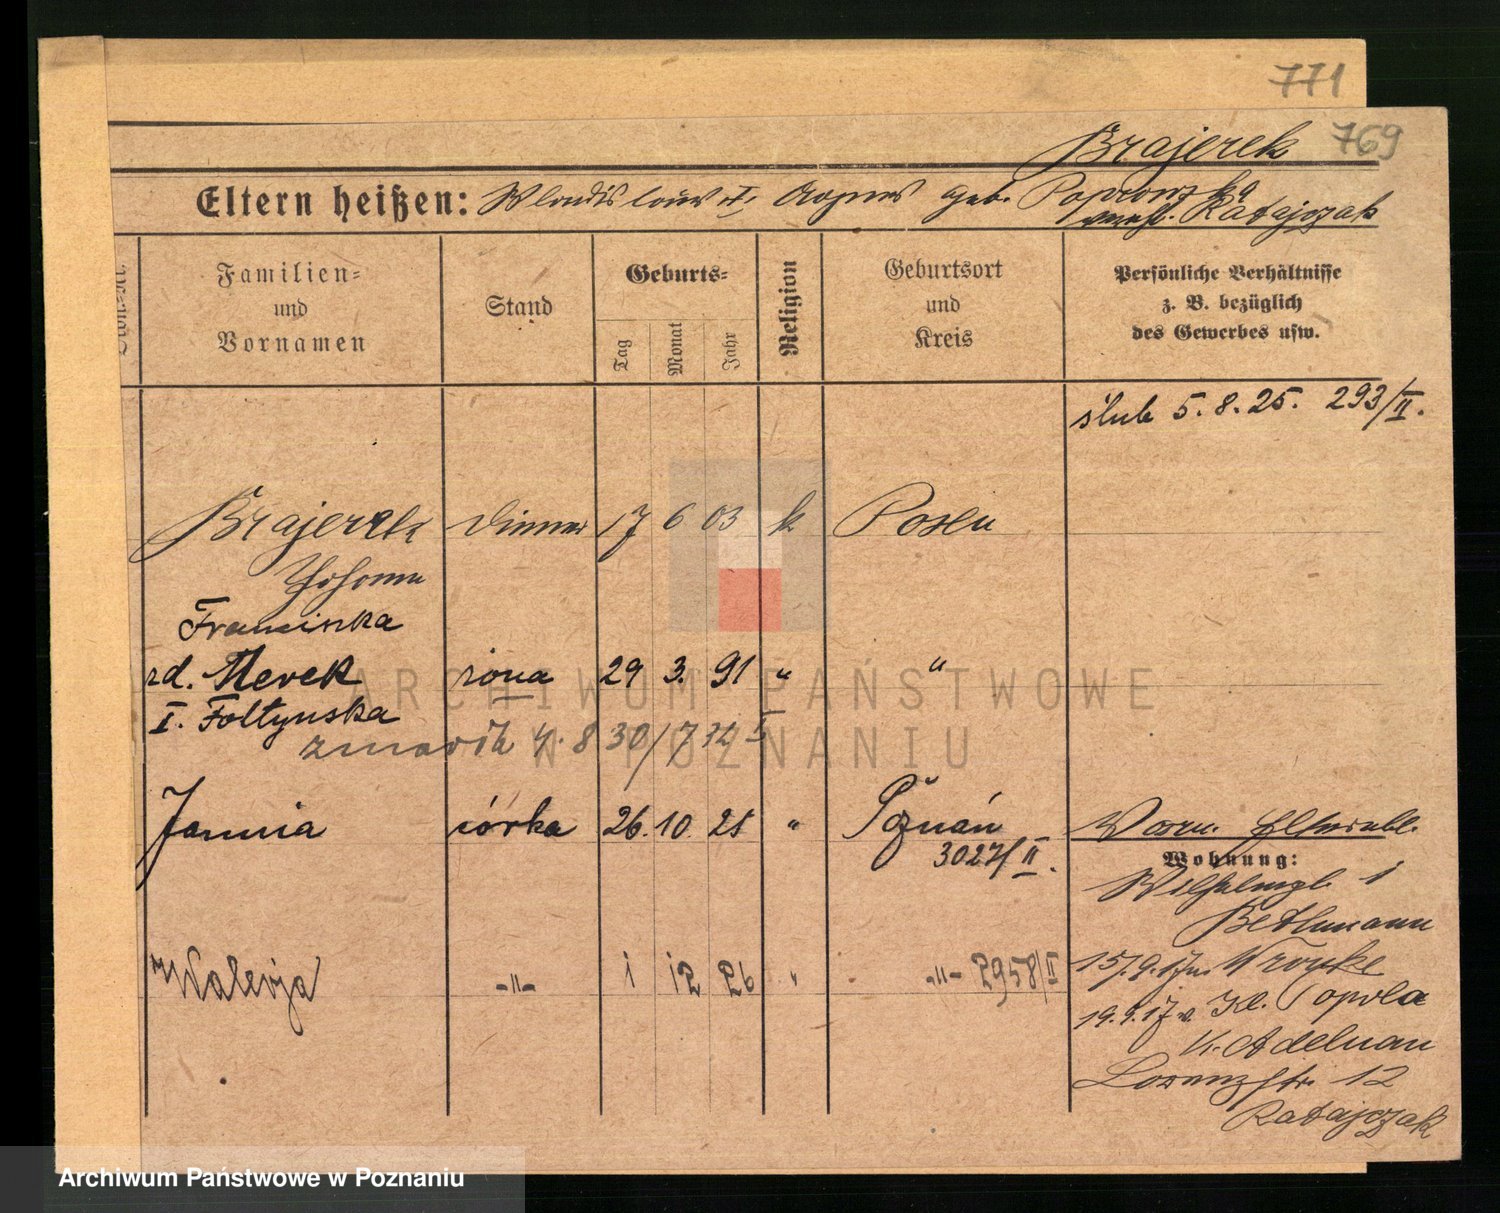 771
769
Brajerek
Eltern heißen: Wladislaus u. Agnes geb. Poprowska
verehl. Ratajczak
Familien=
und
Vornamen
Stand
Geburts=
Tag
Monat
Jahr
Religion
Geburtsort
und
Kreis
Persönliche Verhältnisse
z. B. bezüglich
des Gewerbes usw.
ślub 5.8.25. 293/II.
Brajerek Diener 17 6 03 k Posen
Johann
Franciszka
zd. Merek żona 29 3. 91 " "
I. Foltynska
30/7 32
Janina córka 26. 10. 25 " Poznań
3027/II.
Worn. Elternbl.
Wohnung:
Wilhelmpl. 1
Bethmann
Walerja -"- 1 12 26 " -"- 2958/II
15/9.17 n. Wronke
19.9.17 v. Kl. Popola
b. Adelman
Lorenzstr. 12
Ratajczak
ARCHIWUM PAŃSTWOWE
W POZNANIU
Archiwum Państwowe w Poznaniu